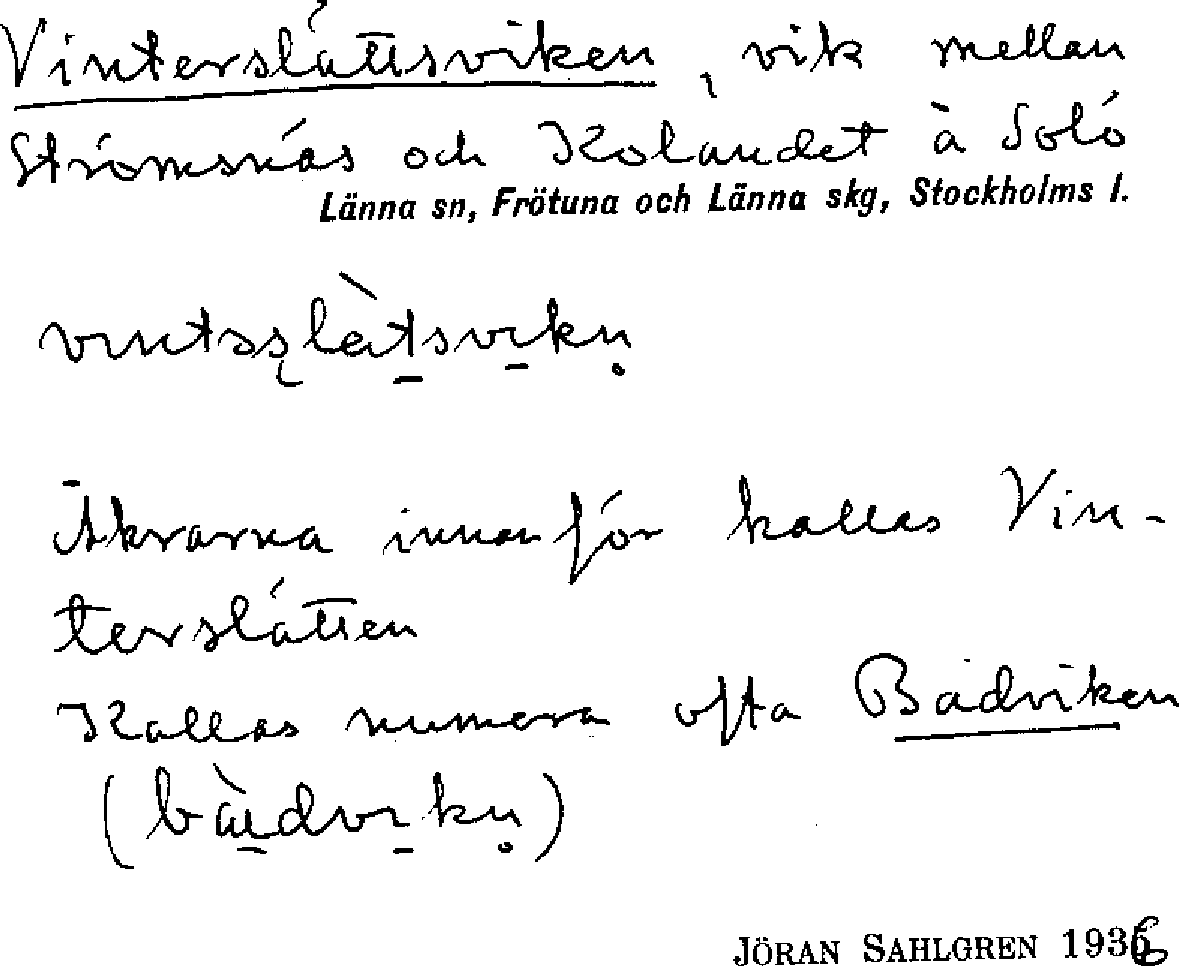 Vinterslättsviken, vik mellan
Strömsnäs och Kolandet å Solö
Länna sn, Frötuna och Länna skg, Stockholms l.
Åkrarna innanför kallas Vin-
terslätten
Kallas numera ofta Badviken
JÖRAN SAHLGREN 1936